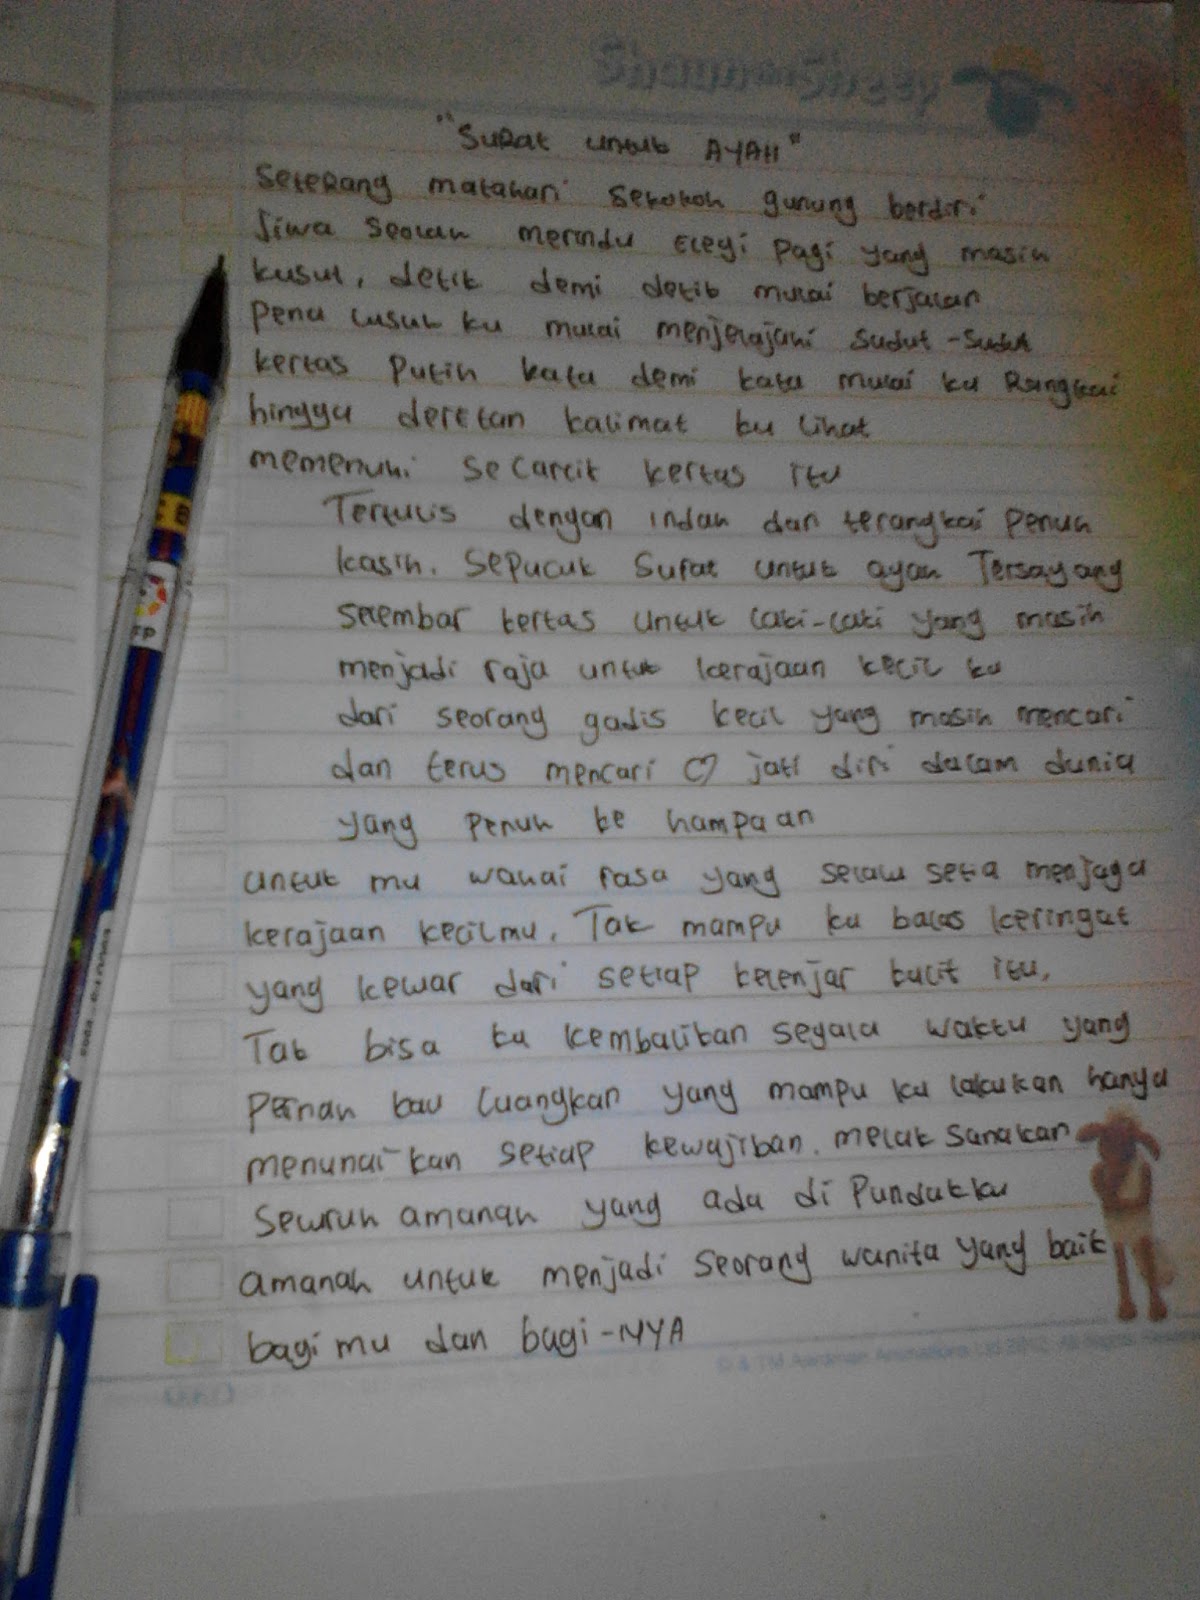 Shaun the Sheep
"Surat untuk AYAH"
Seterang matahari sekokoh gunung berdiri
Jiwa seolah merindu elegi pagi yang masih
kusut, detik demi detik mulai berjalan
Pena lusuh ku mulai menjelajahi sudut-sudut
kertas putih kata demi kata mulai ku Rangkai
hingga deretan kalimat ku lihat
memenuhi secarcik kertas itu
Tertulis dengan indah dan terangkai penuh
kasih. Sepucuk Surat untuk ayah Tersayang
selembar kertas untuk laki-laki yang masih
menjadi raja untuk kerajaan kecil ku
dari seorang gadis kecil yang masih mencari
dan terus mencari jati diri dalam dunia
yang penuh ke hampaan
untuk mu wahai rasa yang selalu setia menjaga
kerajaan kecilmu. Tak mampu ku balas keringat
yang keluar dari setiap kelenjar kulit itu,
Tak bisa ku kembalikan segala waktu yang
Pernah kau luangkan yang mampu ku lakukan hanya
menunai-kan setiap kewajiban. melak sanakan
seluruh amanah yang ada di Pundakku
amanah untuk menjadi seorang wanita yang baik
bagi mu dan bagi-NYA
© & TM Aardman Animations Ltd All Rights